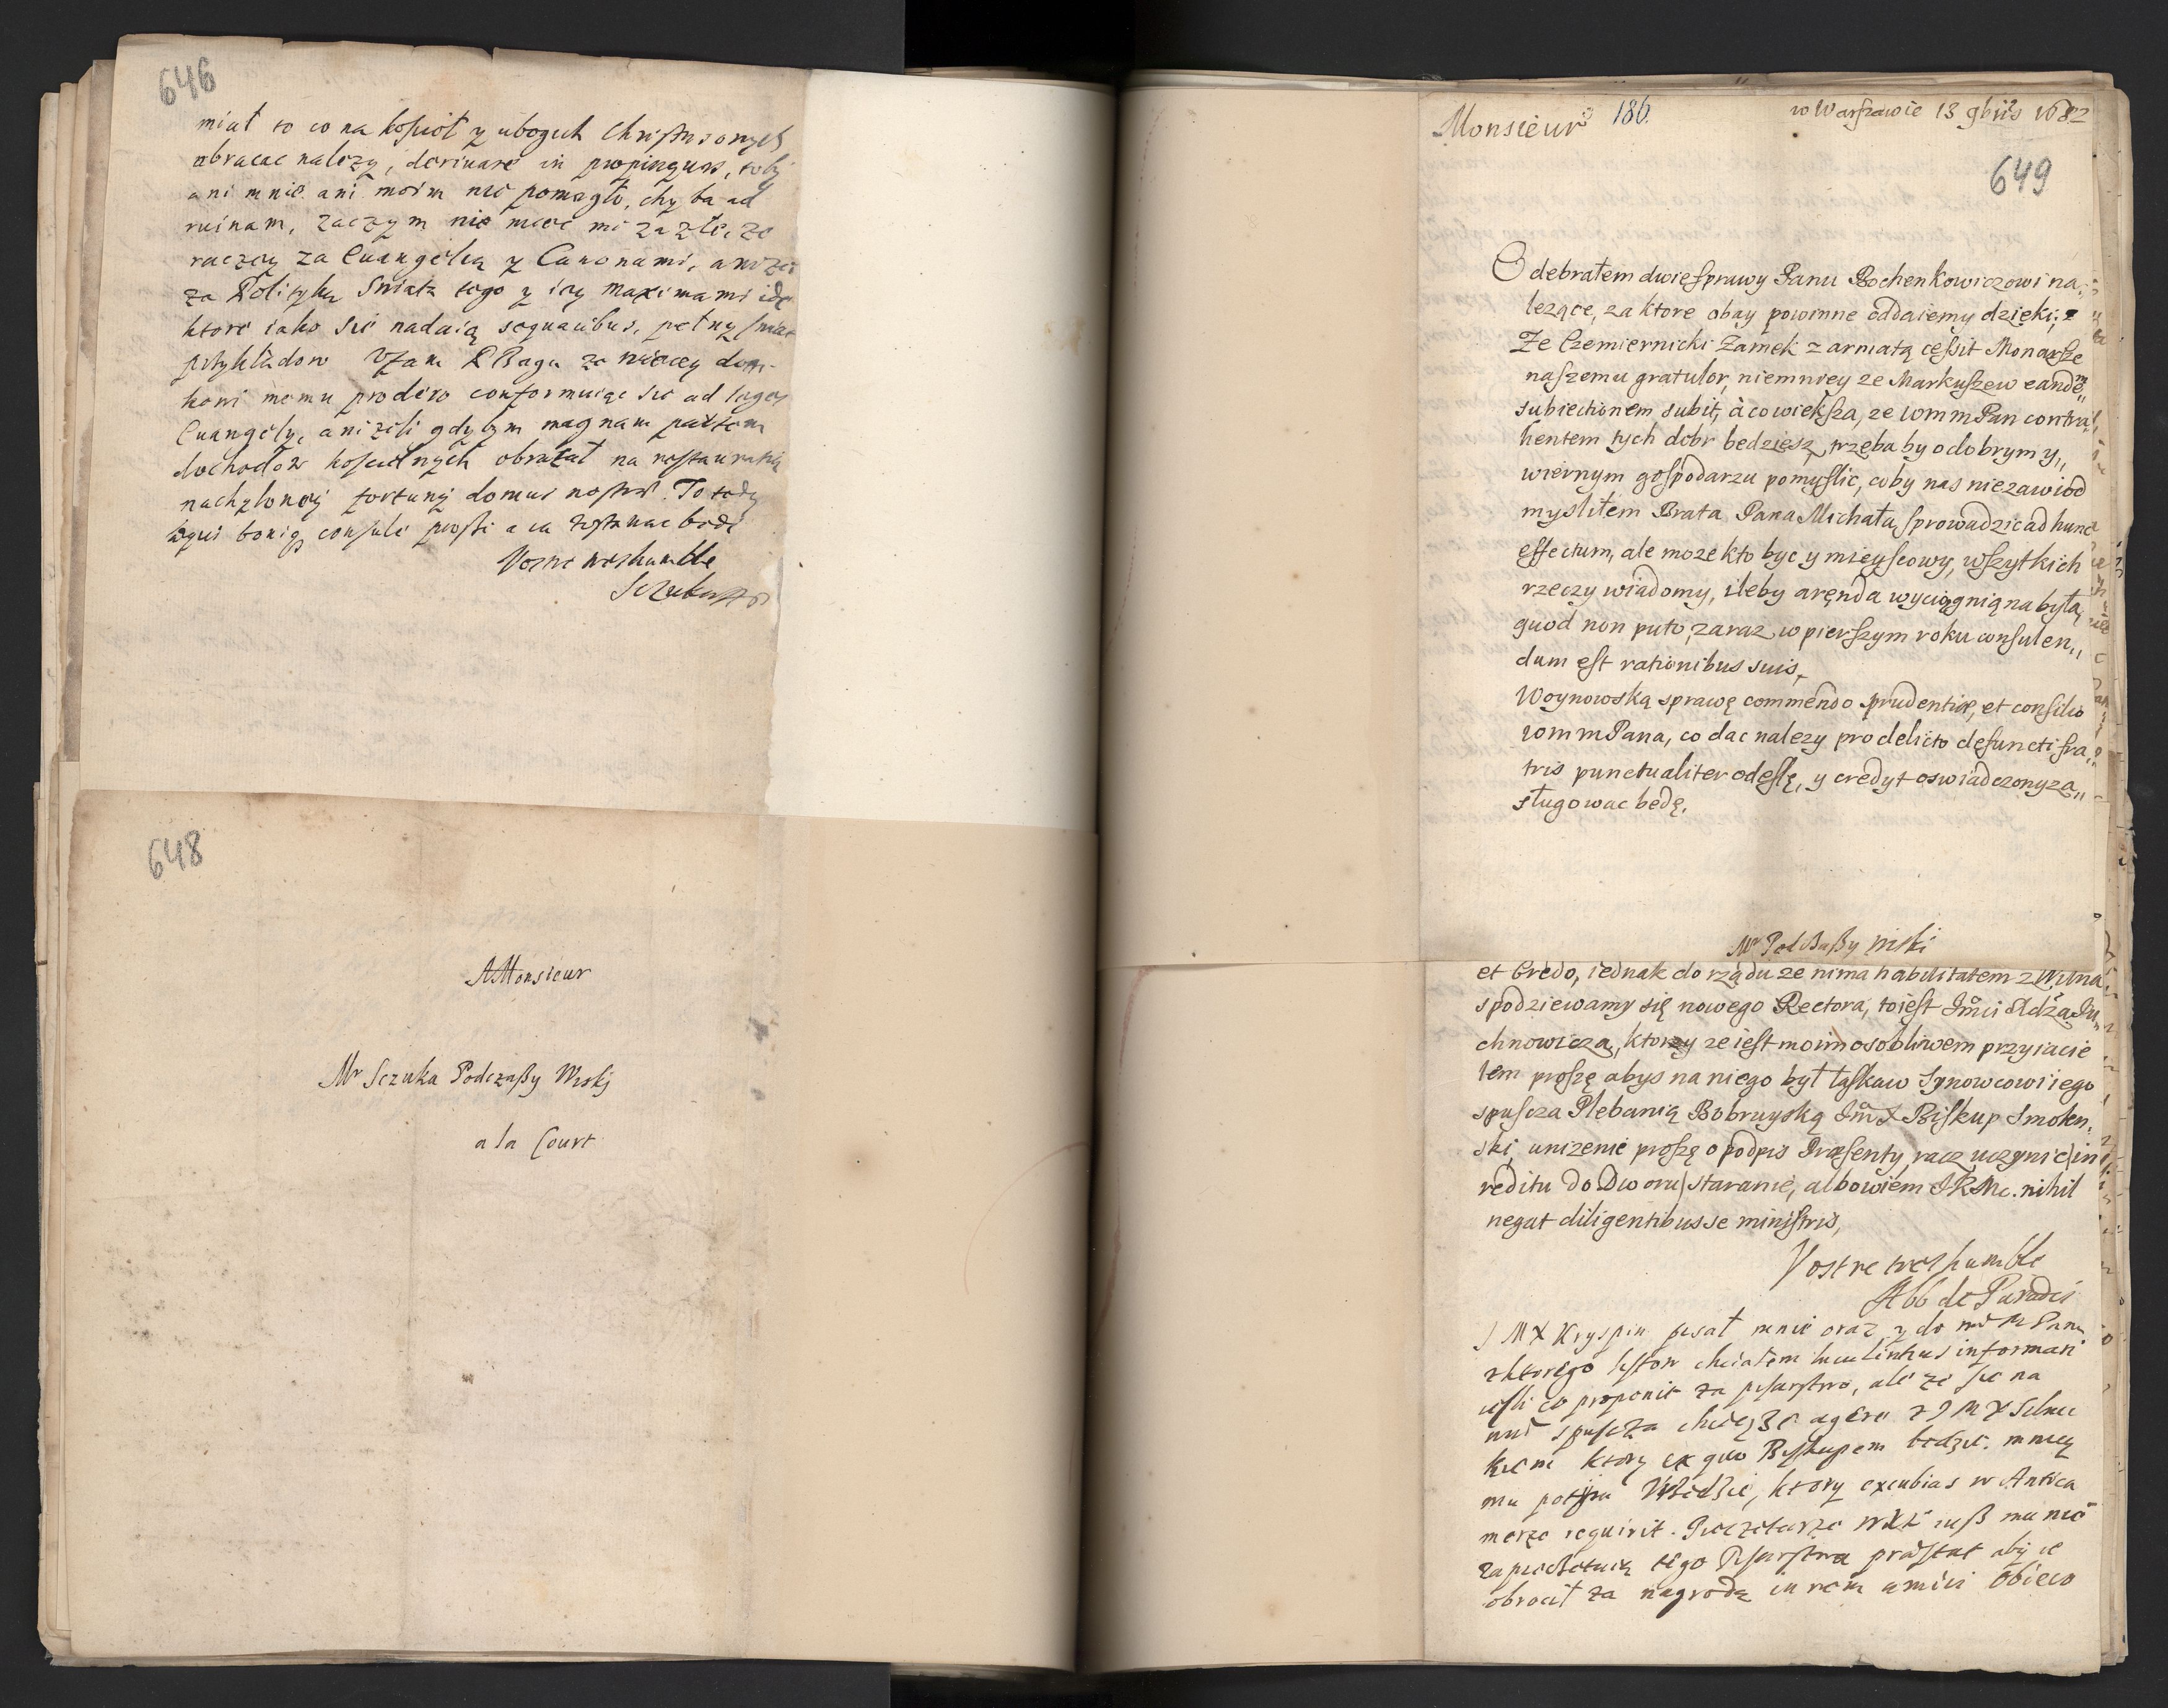 646
miał to co na koscioł y ubogich Christusowych
obracac nalezy, derivare in propinquos, to by
ani mnie ani moim nie pomogło, chyba ad
ruinam, zaczym nie miec mi za złe, ze
raczey za Euangelią y Canonami, anizei
za Polityką Swiata tego y iey maximami idę
ktore iako sie nadaią sequacibus, pełny swiat
przykładow Ufam P Bogu ze wiecey dom-
kowi memu prodero conformuiąc sie ad leges
Euangely, anizeli gdybym magnam partem
dochodow koscielnych obracał na restauratią
nachyloney fortuny domus nostræ. To tedy
æqui boniq consule proszę a ia zostawac będę
Vostre treshumble
Sczuka
648
A Monsieur
Mr Sczuka Podczaszy Wiski
a la Court
Monsieur 186. w Warszawie 13 9bris 1682
649
Odebrałem dwie sprawy Panu Bochenkowiczowi na„
lezące, za ktore obay powinne oddaiemy dzięki;
Ze Czemiernicki Zamek z armatą cessit Monarsze
naszemu gratulor, niemniey ze Markuszew eandem„
subiectionem subit, à co większa, ze wmmPan contra„
hentem tych dobr będziesz, trzeba by o dobrym y„
wiernym gospodarzu pomyslic, coby nas niezawiod
mysliłem Brata Pana Michała, sprowadzic ad hunc
effectum, ale moze kto byc y mieyscowy, wszytkich
rzeczy wiadomy, ileby aręnda wyciągniąna była,
quod non puto, zaraz w pierszym roku consulen„
dum est rationibus suis,
Woynowską sprawę commendo prudentiæ, et consilio
wmmPana, co dac nalezy pro delicto defuncti fra„
tris punctualiter odeslę, y credyt oswiadczony za„
sługowac będę,
Mr Podczaszy Wiski
et Credo, iednak do rządu ze nima habilitatem z Wilna
spodziewamy się nowego Rectora, toiest Jmci Xdza Pu„
chnowicza, ktory ze iest moim osobliwem przyiacie
lem proszę abys na niego był łaskaw Synowcowi iego
spuscza Plebanią Bobruyską Jm X Biskup Smolen„
ski, unizenie proszę o podpis Præsenty, racz uczynic in
reditu do Dworu staranie, albowiem JKMc. nihil
negat diligentibus se ministris,
Vostre treshumble
Abb de Paradis
J M X Kryspin pisał mnie oraz y do wm M Pana
z ktorego listow chciałem luculentius informari
iesli co proponit za pisarstwo, ale ze sie na
mie spuscza chcę agere z J M X
kiem ktory ex quo Biskupem bedzie. mniey
mu potym będzie, ktory excubias w Antica
merze requirit. Pieczetarze WXL iusz mu nie
za pieczętuią tego Pisarstwa præstat aby ie
obrocił za nagrodą in rem amici obieco